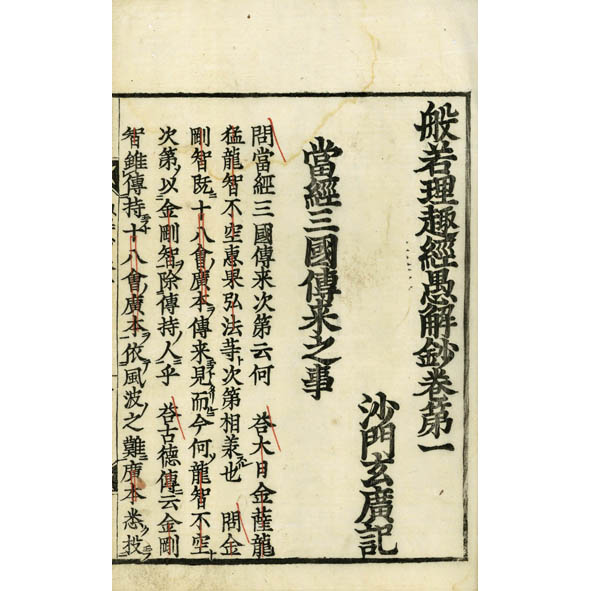 般若理趣經愚解鈔卷第一
沙門玄廣記
當經三國傳来之事
問當經三國傳来次第云何　答大日金薩龍
猛龍智不空惠果弘法等ト次第相兼也　問金
剛智既ニ十八會廣本ヲ傳来見而今何ソ龍智不空ト
次第ソ以金剛智ヲ除傳持ノ人ニ乎　答古德ノ傳ニ云金剛
智雖傳持十八會廣本ヲ依風波之難ニ廣本悉ク投